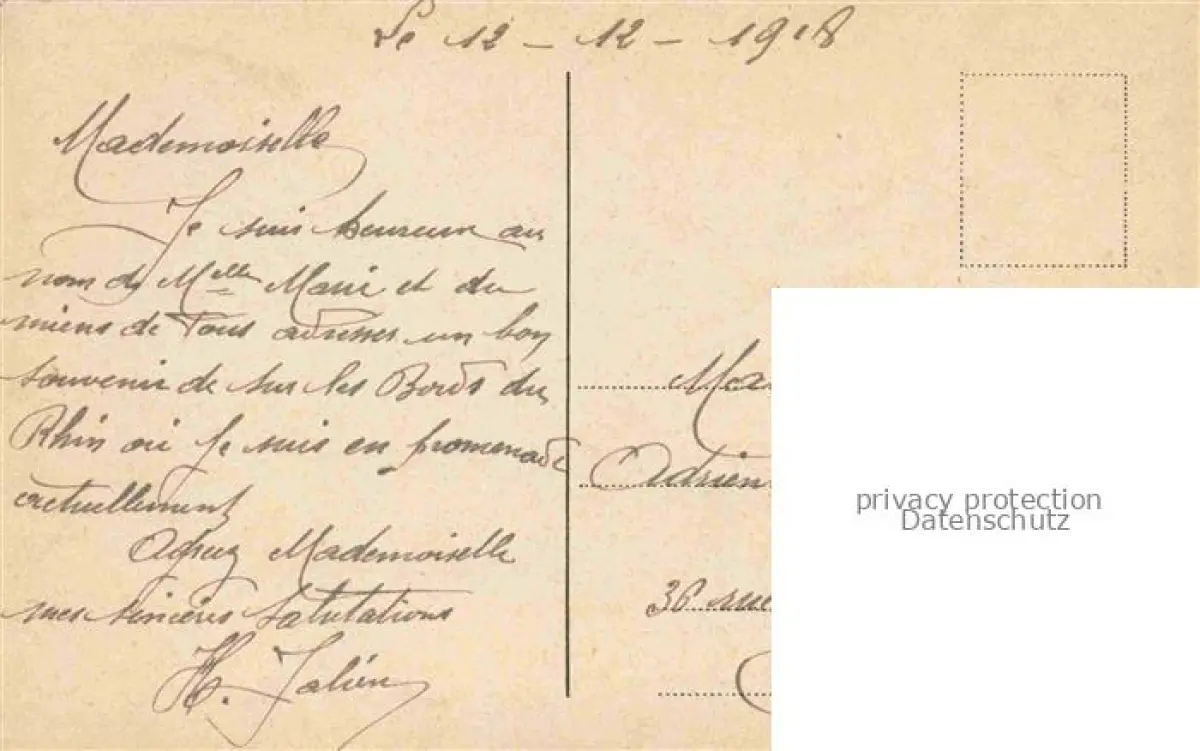 Le 12 - 12 - 1918
Mademoiselle
Je suis heureux au
nom de Melle Marie et du
miens de vous adresser un bon
souvenir de sur les Bords du
Rhin où Je suis en promenade
actuellement
Agreez Mademoiselle
mes sincères salutations
H.
Ma
Adrien
36 rue
privacy protection
Datenschutz